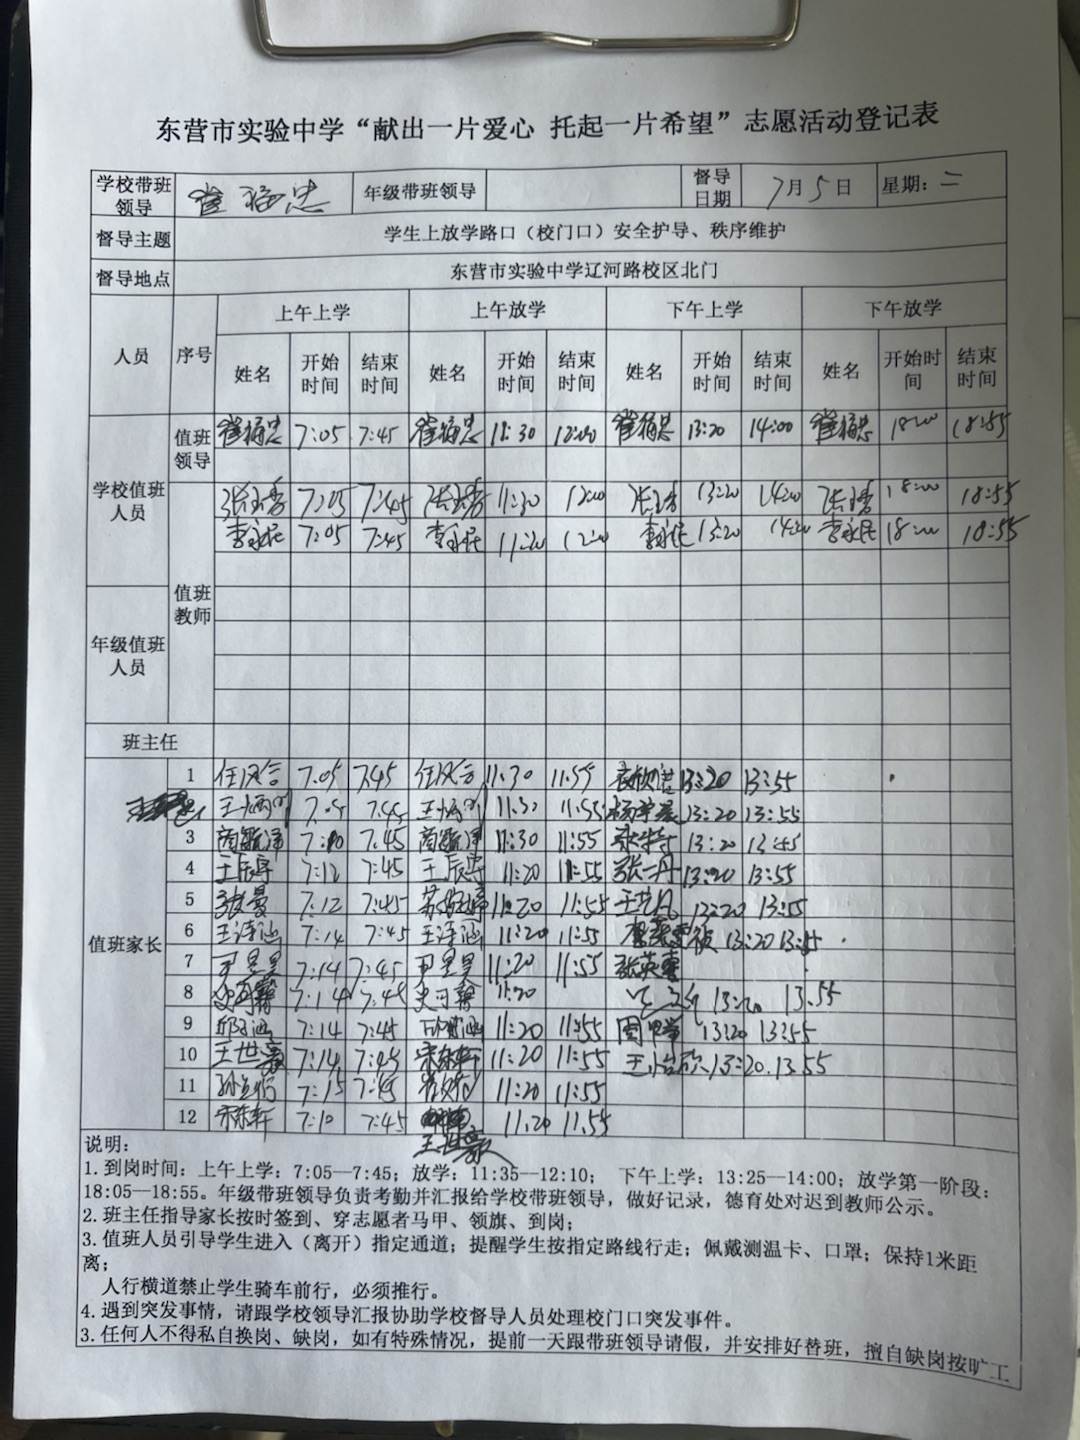 东营市实验中学“献出一片爱心 托起一片希望”志愿活动登记表
学校带班领导 崔福忠 年级带班领导 督导日期 7月5日 星期：二
督导主题 学生上放学路口（校门口）安全护导、秩序维护
督导地点 东营市实验中学辽河路校区北门
人员 序号 上午上学 上午放学 下午上学 下午放学
姓名 开始时间 结束时间 姓名 开始时间 结束时间 姓名 开始时间 结束时间 姓名 开始时间 结束时间
学校值班人员 值班领导 崔福忠 7:05 7:45 崔福忠 11:30 12:00 崔福忠 13:20 14:00 崔福忠 18:00 18:55
值班教师 7:05 7:45 11:30 12:00 13:20 14:00 18:00 18:55
李永民 7:05 7:45 李永民 11:20 12:00 李永民 13:20 14:00 李永民 18:00 18:55
年级值班人员
班主任
值班家长
1 任风合 7:05 7:45 任风合 11:30 11:55 13:20 13:55
7:05 7:45 11:30 11:55 13:20 13:55
3 7:10 7:45 11:30 11:55 13:20 13:45
4 王辰宇 7:12 7:45 王辰宇 11:20 11:55 张一丹 13:20 13:55
5 张曼 7:12 7:45 11:20 11:55 王艺凡 13:20 13:55
6 王泽涵 7:14 7:45 王泽涵 11:20 11:55 13:20 13:55
7 尹昱昊 7:14 7:45 尹昱昊 11:20 11:55 张英惠
8 史可馨 7:14 7:45 史可馨 11:20 13:20 13:55
9 7:14 7:45 11:20 11:55 13:20 13:55
10 王世豪 7:14 7:45 宋东轩 11:20 11:55 王怡欣 13:20 13.55
11 7:15 7:45 11:20 11:55
12 宋东轩 7:10 7:45 11.20 11.55
王世豪
说明：
1. 到岗时间：上午上学：7:05—7:45；放学：11:35—12:10； 下午上学：13:25—14:00；放学第一阶段：
18:05—18:55。年级带班领导负责考勤并汇报给学校带班领导，做好记录，德育处对迟到教师公示。
2. 班主任指导家长按时签到、穿志愿者马甲、领旗、到岗；
3. 值班人员引导学生进入（离开）指定通道；提醒学生按指定路线行走；佩戴测温卡、口罩；保持1米距
离；
人行横道禁止学生骑车前行，必须推行。
4. 遇到突发事情，请跟学校领导汇报协助学校督导人员处理校门口突发事件。
3. 任何人不得私自换岗、缺岗，如有特殊情况，提前一天跟带班领导请假，并安排好替班，擅自缺岗按旷工